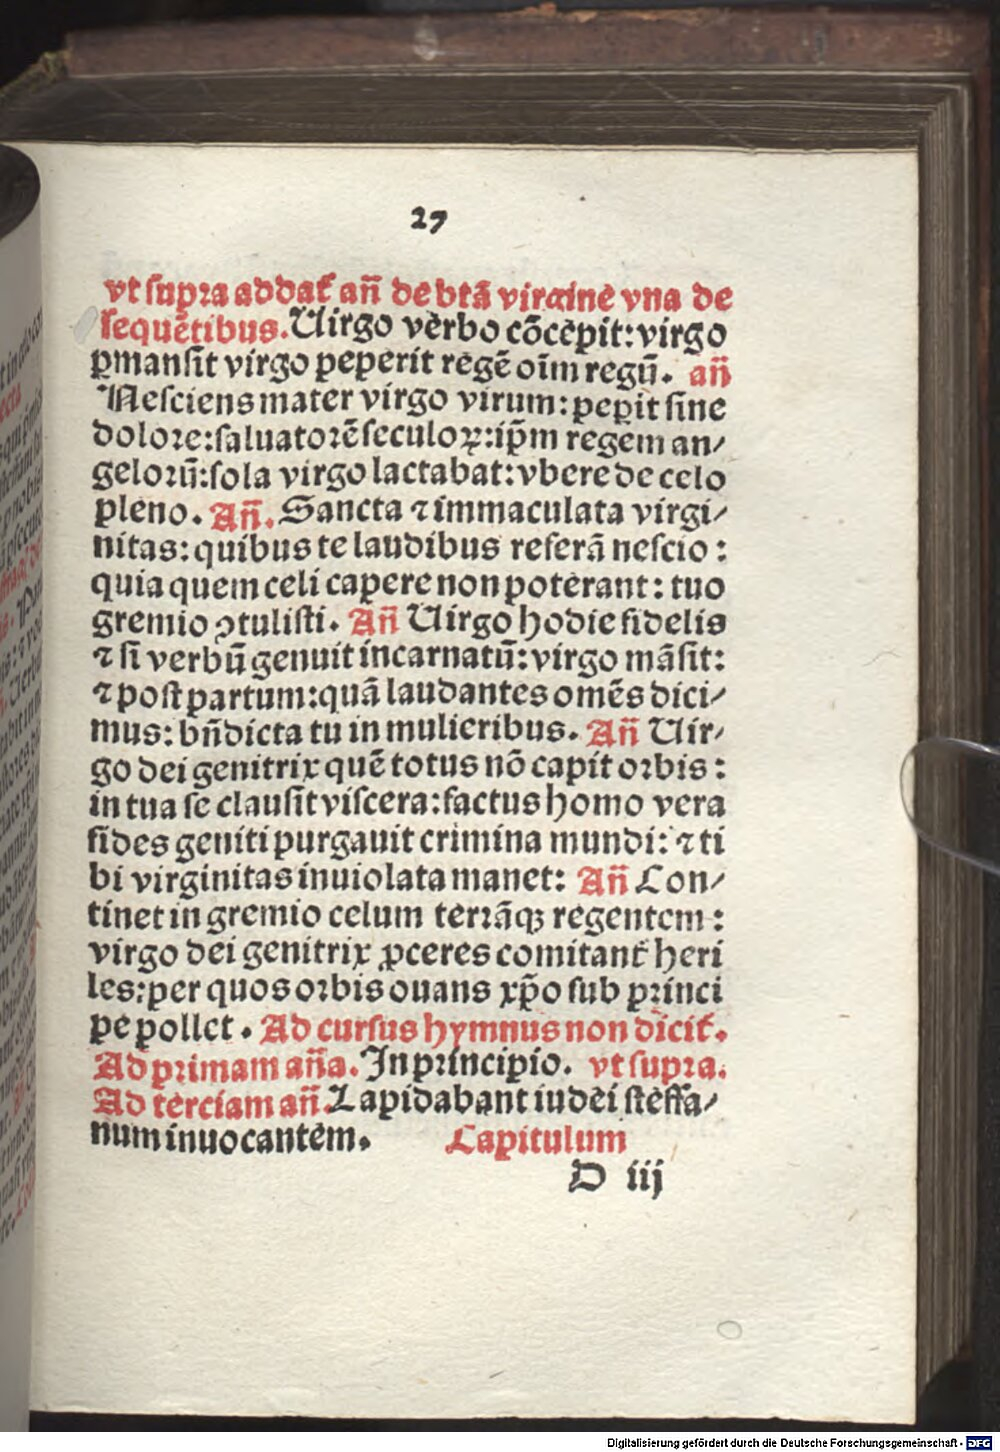 27
vt supra addat᷑ an̄ de btā virgine vna de
sequētibus. Uirgo verbo cōcepit: virgo
ꝑmansit virgo peperit regē oīm regū. an̄
Nesciens mater virgo virum: peꝑit sine
dolore: saluatorē seculoꝝ: ip̄m regem an⸗
gelorū: sola virgo lactabat: vbere de celo
pleno. An̄. Sancta ⁊ immaculata virgi⸗
nitas: quibus te laudibus referā nescio:
quia quem celi capere non poterant: tuo
gremio ꝯtulisti. An̄ Uirgo hodie fidelis
⁊ si verbū genuit incarnatū: virgo māsit:
⁊ post partum: quā laudantes omēs dici⸗
mus: bn̄dicta tu in mulieribus. An̄ Uir⸗
go dei genitrix quē totus nō capit orbis:
in tua se clausit viscera: factus homo vera
fides geniti purgauit crimina mundi: ⁊ ti
bi virginitas inuiolata manet: An̄ Con⸗
tinet in gremio celum terrāqꝫ regentem:
virgo dei genitrix ꝓceres comitant᷑ heri
les: per quos orbis ouans xp̄o sub princi
pe pollet. Ad cursus hymnus non dicit᷑.
Ad primam an̄a. In principio. vt supra.
Ad terciam an̄. Lapidabant iudei steffa⸗
num inuocantem. Capitulum
D iij
Digitalisierung gefördert durch die Deutsche Forschungsgemeinschaft - DFG